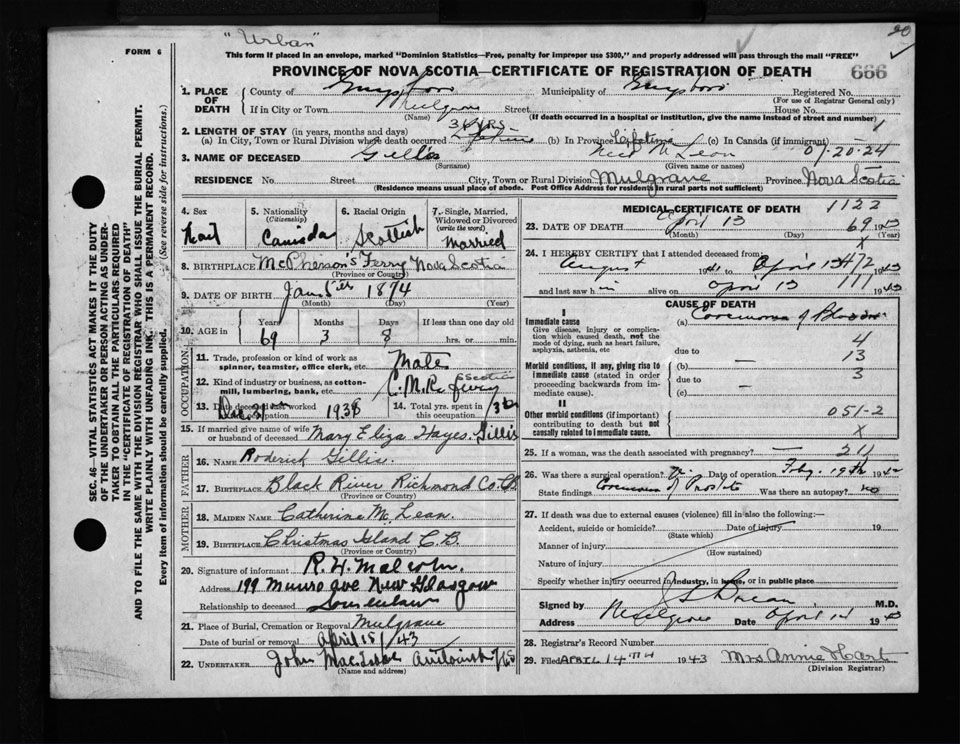 "Urban"
20
FORM 6
This form if placed in an envelope, marked "Dominion Statistics—Free, penalty for improper use $300," and properly addressed will pass through the mail "FREE"
PROVINCE OF NOVA SCOTIA—CERTIFICATE OF REGISTRATION OF DEATH
666
SEC. 46—VITAL STATISTICS ACT MAKES IT THE DUTY
OF THE UNDERTAKER OR PERSON ACTING AS UNDER-
TAKER TO OBTAIN ALL THE PARTICULARS REQUIRED
IN THE "CERTIFICATE OF REGISTRATION OF DEATH"
AND TO FILE THE SAME WITH THE DIVISION REGISTRAR WHO SHALL ISSUE THE BURIAL PERMIT.
WRITE PLAINLY WITH UNFADING INK. THIS IS A PERMANENT RECORD.
Every item of information should be carefully supplied. (See reverse side for instructions.)
1. PLACE OF DEATH
County of Guysboro Municipality of Guysboro Registered No.
(For use of Registrar General only)
If in City or Town Mulgrave Street House No.
(Name) (If death occurred in a hospital or institution, give the name instead of street and number)
2. LENGTH OF STAY (in years, months and days)
(a) In City, Town or Rural Division where death occurred (b) In Province Lifetime (c) In Canada (if immigrant)
3. NAME OF DECEASED Gillis McLean 07-20-24
(Surname) (Given name or names)
RESIDENCE No. Street City, Town or Rural Division Mulgrave Province Nova Scotia
(Residence means usual place of abode. Post Office Address for residents in rural parts not sufficient)
4. Sex
5. Nationality (Citizenship) Canada
6. Racial Origin Scottish
7. Single, Married, Widowed or Divorced (write the word) Married
8. BIRTHPLACE McPherson's Ferry Nova Scotia
(Province or Country)
9. DATE OF BIRTH Jan 5th 1874
(Month) (Day) (Year)
10. AGE in Years Months Days If less than one day old
69 3 8 hrs. or min.
OCCUPATION
11. Trade, profession or kind of work as spinner, teamster, office clerk, etc. Mate
12. Kind of industry or business, as cotton-mill, lumbering, bank, etc.
13. Date deceased last worked at this occupation Dec. 31st 1938
14. Total yrs. spent in this occupation
15. If married give name of wife or husband of deceased Mary Eliza Hayes Gillis
FATHER
16. NAME Roderick Gillis
17. BIRTHPLACE Black River Richmond Co. C.B.
(Province or Country)
MOTHER
18. MAIDEN NAME Catherine McLean
19. BIRTHPLACE Christmas Island C.B.
(Province or Country)
20. Signature of informant R. H. Malcolm
Address 199 Munro ave New Glasgow
Relationship to deceased Son in law
21. Place of Burial, Cremation or Removal Mulgrave
Date of burial or removal April 15/43
22. UNDERTAKER John MacIsaac Antigonish N.S.
(Name and address)
MEDICAL CERTIFICATE OF DEATH 1122
23. DATE OF DEATH April 13 69 1943
(Month) (Day) (Year)
x
24. I HEREBY CERTIFY that I attended deceased from
August 1941 to April 13th 1943
and last saw him alive on April 13 1943
CAUSE OF DEATH
I
Immediate cause (a)
Give disease, injury or complication which caused death, not the mode of dying, such as heart failure, asphyxia, asthenia, etc
due to
Morbid conditions, if any, giving rise to immediate cause (stated in order proceeding backwards from immediate cause). (b)
due to
(c)
4
13
3
II
Other morbid conditions (if important) contributing to death but not causally related to immediate cause.
051-2
x
25. If a woman, was the death associated with pregnancy? 211
26. Was there a surgical operation? Date of operation Feby. 19th 194
State findings Was there an autopsy? no
27. If death was due to external causes (violence) fill in also the following:—
Accident, suicide or homicide? Date of injury 19
(State which)
Manner of injury
(How sustained)
Nature of injury
Specify whether injury occurred in industry, in home, or in public place
Signed by M.D.
Address Mulgrave Date April 14 1943
28. Registrar's Record Number
29. Filed APRIL 14TH 1943 Mrs Annie Hart
(Division Registrar)